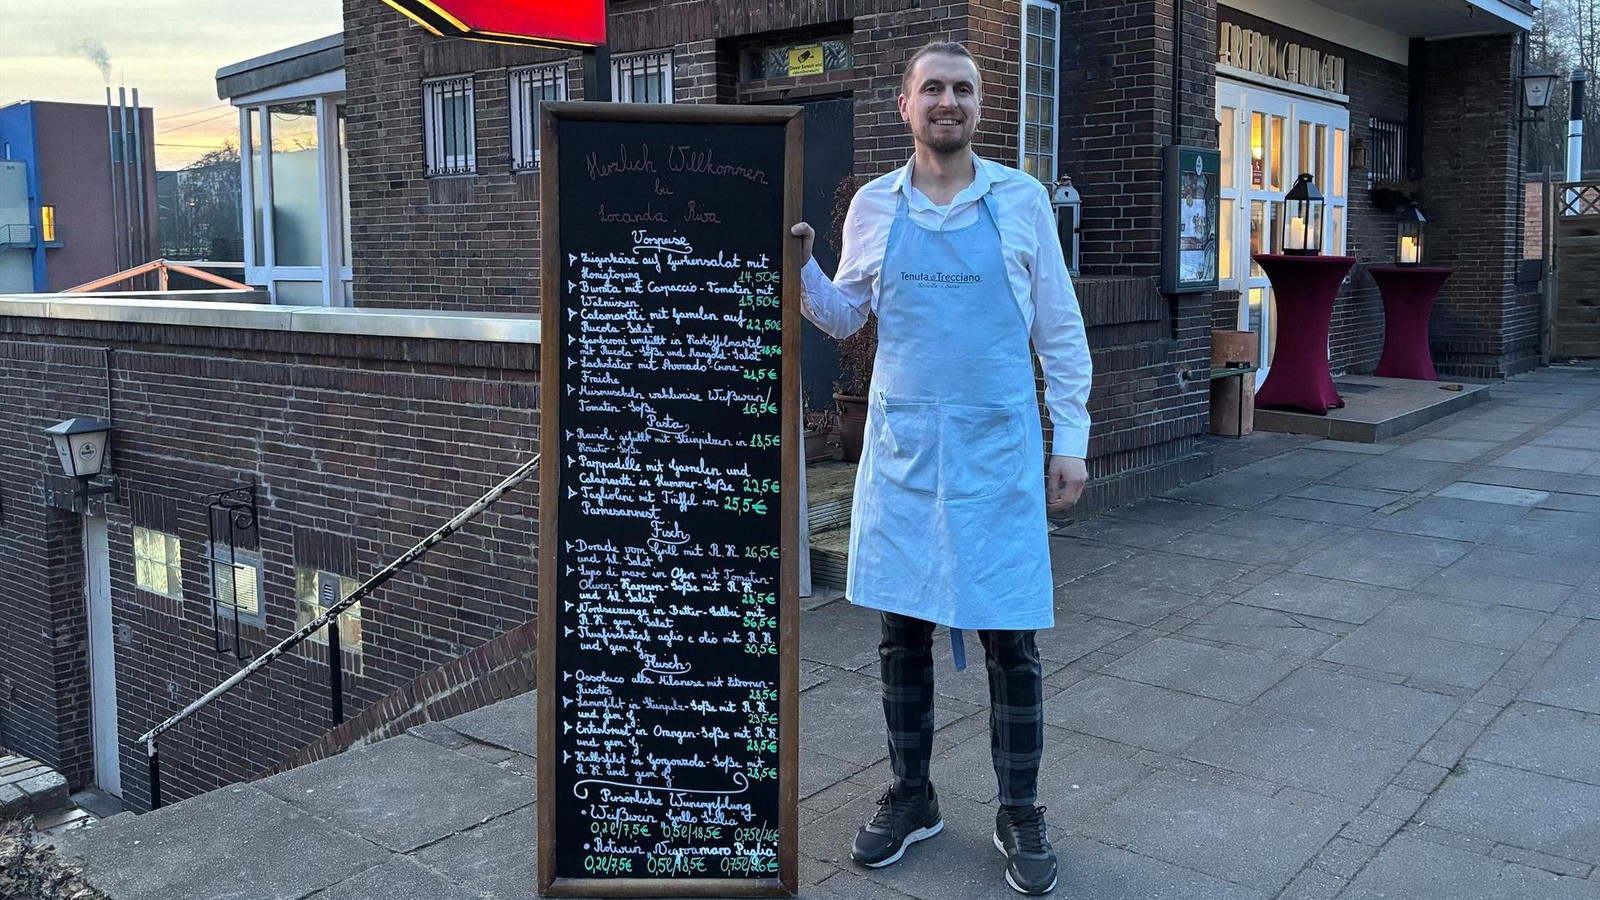 Herzlich Willkommen
bei
Locanda Riva
Vorspeise
Ziegenkäse auf Gurkensalat mit
Honigtopping 14,50€
Burrata mit Carpaccio-Tomaten mit
Walnüssen 15,50€
Calamaretti mit Garnelen auf
Rucola-Salat 22,50€
Gamberoni umfüllt in Kartoffelmantel
mit Rucola-Soße und Mangold-Salat 18,5€
Lachstatar mit Avocado-Creme-
Fraiche 21,5€
Miesmuscheln wahlweise Weißwein/
Tomaten-Soße 16,5€
Pasta
Ravioli gefüllt mit Steinpilzen in 18,5€
Kräuter-Soße
Pappadelle mit Garnelen und
Calamaretti in Hummer-Soße 22,5€
Tagliolini mit Trüffel im 25,5€
Parmesannest
Fisch
Dorade vom Grill mit R.K. 26,5€
und kl. Salat
Lupo di mare in Ofen mit Tomaten-
Oliven-Kapern-Soße mit R.K.
und kl. Salat 28,5€
Nordseezunge in Butter-Salbei mit
R.K. gem. Salat 36,5€
Thunfischsteak aglio e olio mit R.K.
und gem. G. 30,5€
Fleisch
Ossobuco alla Milanese mit Zitronen-
Risotto 28,5€
Lammfilet in Steinpilz-Soße mit R.K.
und gem. G. 29,5€
Entenbrust in Orangen-Soße mit R.K.
und gem. G. 28,5€
Kalbsfilet in Gorgonzola-Soße mit
R.K. und gem. G. 28,5€
Persönliche Weinempfehlung
Weißwein "Grillo Sicilia"
0,2l/7,5€ 0,5l/18,5€ 0,75l/26€
Rotwein "Negroamaro Puglia"
0,2l/7,5€ 0,5l/18,5€ 0,75l/26€
Tenuta di Trecciano
ERFRISCHUNGEN